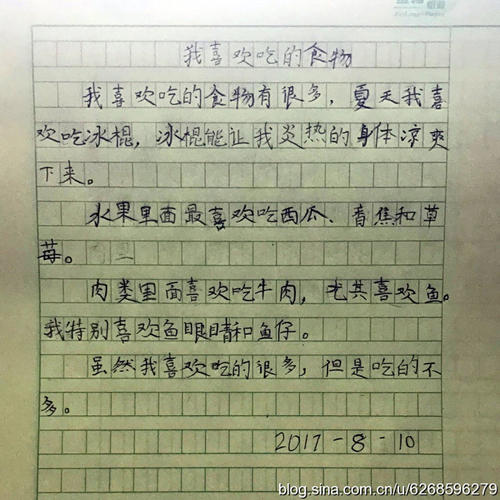 我喜欢吃的食物
我喜欢吃的食物有很多，夏天我喜
欢吃冰棍，冰棍能让我炎热的身体凉爽
下来。
水果里面最喜欢吃西瓜、香焦和草
莓。
肉类里面喜欢吃牛肉，尤其喜欢鱼。
我特别喜欢鱼眼睛和鱼仔。
虽然我喜欢吃的很多，但是吃的不
多。
2017-8-10
blog.sina.com.cn/u/6268596279